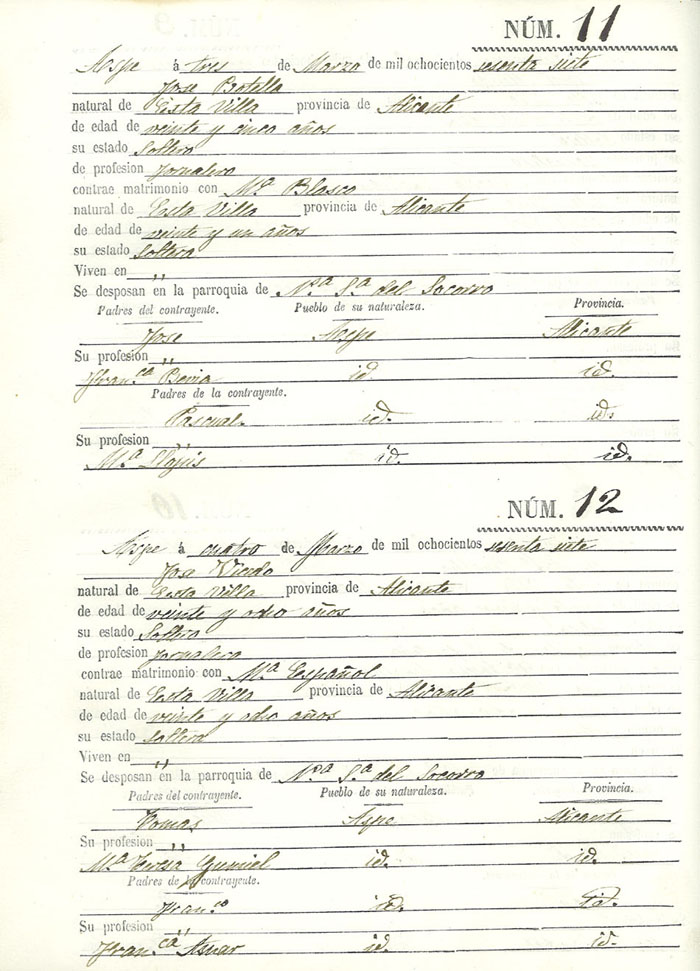 NÚM. 11
Aspe á tres de Marzo de mil ochocientos sesenta siete
Jose Botella
natural de Esta Villa provincia de Alicante
de edad de veinte y cinco años
su estado Soltero
de profesion Jornalero
contrae matrimonio con Mª Blasco
natural de Esta Villa provincia de Alicante
de edad de veinte y un años
su estado Soltera
Viven en ,,
Se desposan en la parroquia de Nª Sª del Socorro
Padres del contrayente. Pueblo de su naturaleza. Provincia.
Jose Aspe Alicante
Su profesión ,,
Franca id. id.
Padres de la contrayente.
Pascual. id. id.
Su profesion ,,
Mª id. id.
NÚM. 12
Aspe á cuatro de Marzo de mil ochocientos sesenta siete
Jose
natural de Esta Villa provincia de Alicante
de edad de veinte y ocho años
su estado Soltero
de profesion Jornalero
contrae matrimonio con Mª Español
natural de Esta Villa provincia de Alicante
de edad de veinte y ocho años
su estado Soltera
Viven en ,,
Se desposan en la parroquia de Nª Sª del Socorro
Padres del contrayente. Pueblo de su naturaleza. Provincia.
Tomas Aspe Alicante
Su profesión ,,
Mª Teresa Gumiel id. id.
Padres de la contrayente.
Franco id. id.
Su profesion ,,
Franca Asnar id. id.